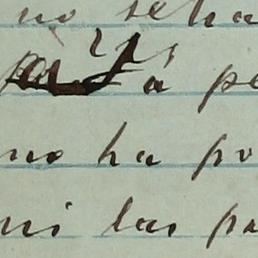 no se ha
á pe
no ha po
ni las pa